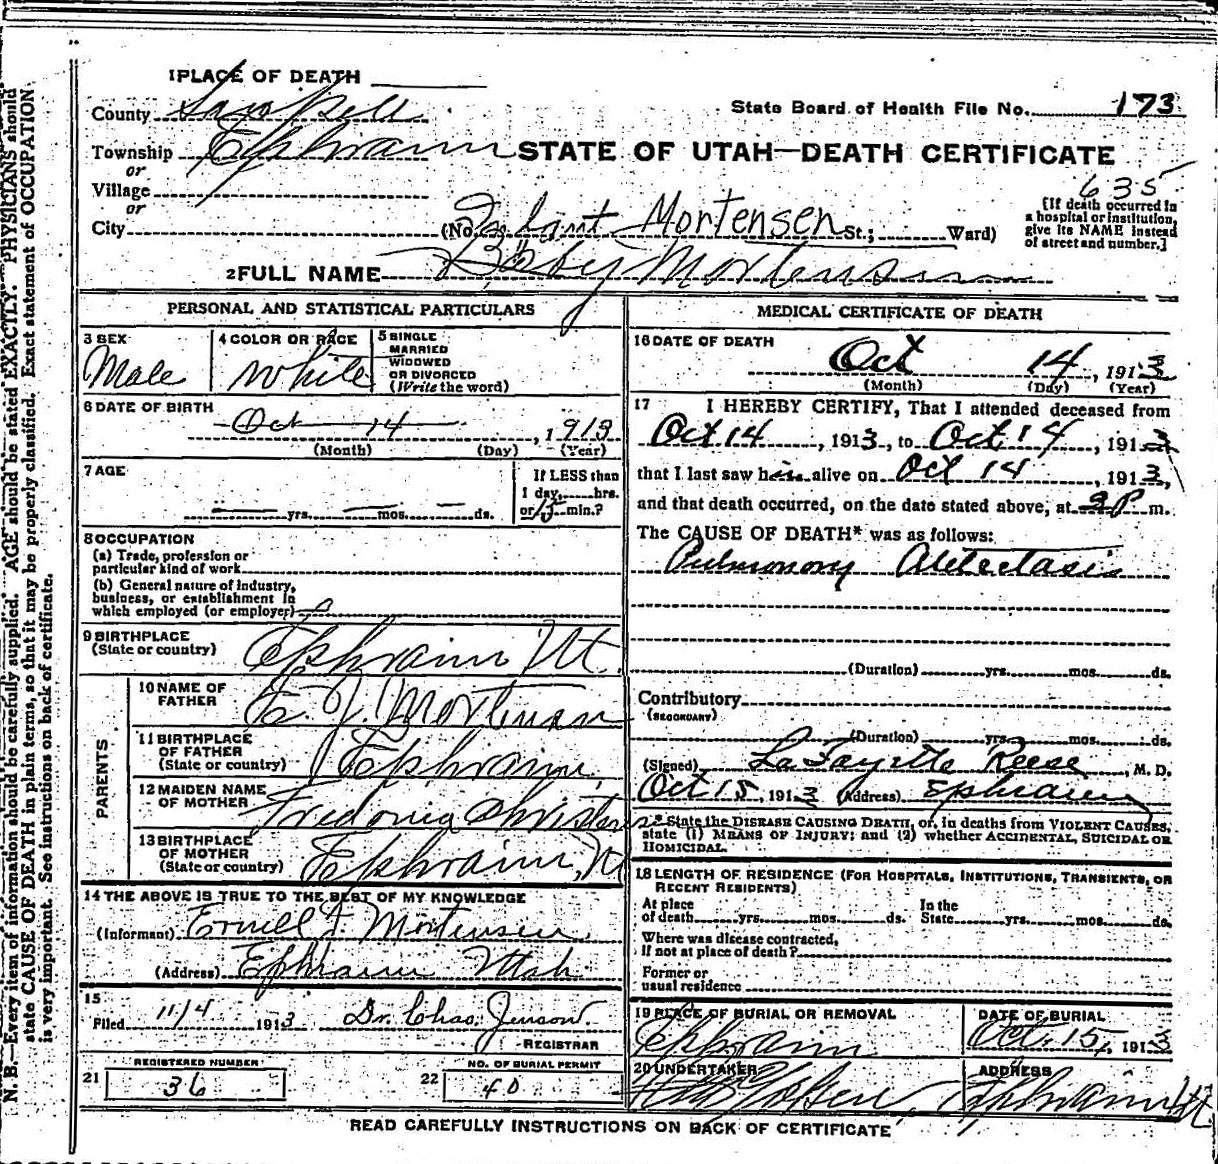 1 PLACE OF DEATH
County Sanpete
State Board of Health File No. 173
Township Ephraim
STATE OF UTAH—DEATH CERTIFICATE
or
Village
635
or
[If death occurred in a hospital or institution, give its NAME instead of street and number.]
City (No. Infant Mortensen St.; Ward)
2 FULL NAME Baby Mortensen
PERSONAL AND STATISTICAL PARTICULARS
3 SEX
Male
4 COLOR OR RACE
White
5 SINGLE
MARRIED
WIDOWED
OR DIVORCED
(Write the word)
6 DATE OF BIRTH
Oct 14, 1913
(Month) (Day) (Year)
7 AGE
If LESS than
1 day, hrs.
— yrs. — mos. — ds. or 15 min.?
8 OCCUPATION
(a) Trade, profession or
particular kind of work
(b) General nature of industry,
business, or establishment in
which employed (or employer)
9 BIRTHPLACE
(State or country) Ephraim Ut.
PARENTS
10 NAME OF
FATHER E. J. Mortensen
11 BIRTHPLACE
OF FATHER
(State or country) Ephraim,
12 MAIDEN NAME
OF MOTHER Fredonia
13 BIRTHPLACE
OF MOTHER
(State or country) Ephraim, Ut
14 THE ABOVE IS TRUE TO THE BEST OF MY KNOWLEDGE
(Informant) Mortensen
(Address) Ephraim Utah
15
Filed 11/4 1913 Dr. Chas. Jenson.
REGISTRAR
REGISTERED NUMBER
21 36
NO. OF BURIAL PERMIT
22 40
MEDICAL CERTIFICATE OF DEATH
16 DATE OF DEATH
Oct 14, 1913
(Month) (Day) (Year)
17 I HEREBY CERTIFY, That I attended deceased from
Oct 14, 1913, to Oct 14, 1913
that I last saw him alive on Oct 14, 1913,
and that death occurred, on the date stated above, at 2 P m.
The CAUSE OF DEATH* was as follows:
Pulmonary Atelectasis
(Duration) yrs. mos. ds.
Contributory
(SECONDARY)
(Duration) yrs. mos. ds.
(Signed) La Fayette Reese, M. D.
Oct 15, 1913 (Address) Ephraim
* State the DISEASE CAUSING DEATH, or, in deaths from VIOLENT CAUSES,
state (1) MEANS OF INJURY; and (2) whether ACCIDENTAL, SUICIDAL OR
HOMICIDAL.
18 LENGTH OF RESIDENCE (FOR HOSPITALS, INSTITUTIONS, TRANSIENTS, OR
RECENT RESIDENTS)
At place
of death yrs. mos. ds.
In the
State yrs. mos. ds.
Where was disease contracted,
if not at place of death?
Former or
usual residence
19 PLACE OF BURIAL OR REMOVAL
Ephraim
DATE OF BURIAL
Oct. 15, 1913
20 UNDERTAKER
ADDRESS
Ephraim Ut.
READ CAREFULLY INSTRUCTIONS ON BACK OF CERTIFICATE
N. B.—Every item of information should be carefully supplied. AGE should be stated EXACTLY. PHYSICIANS should
state CAUSE OF DEATH in plain terms, so that it may be properly classified. Exact statement of OCCUPATION
is very important. See instructions on back of certificate.